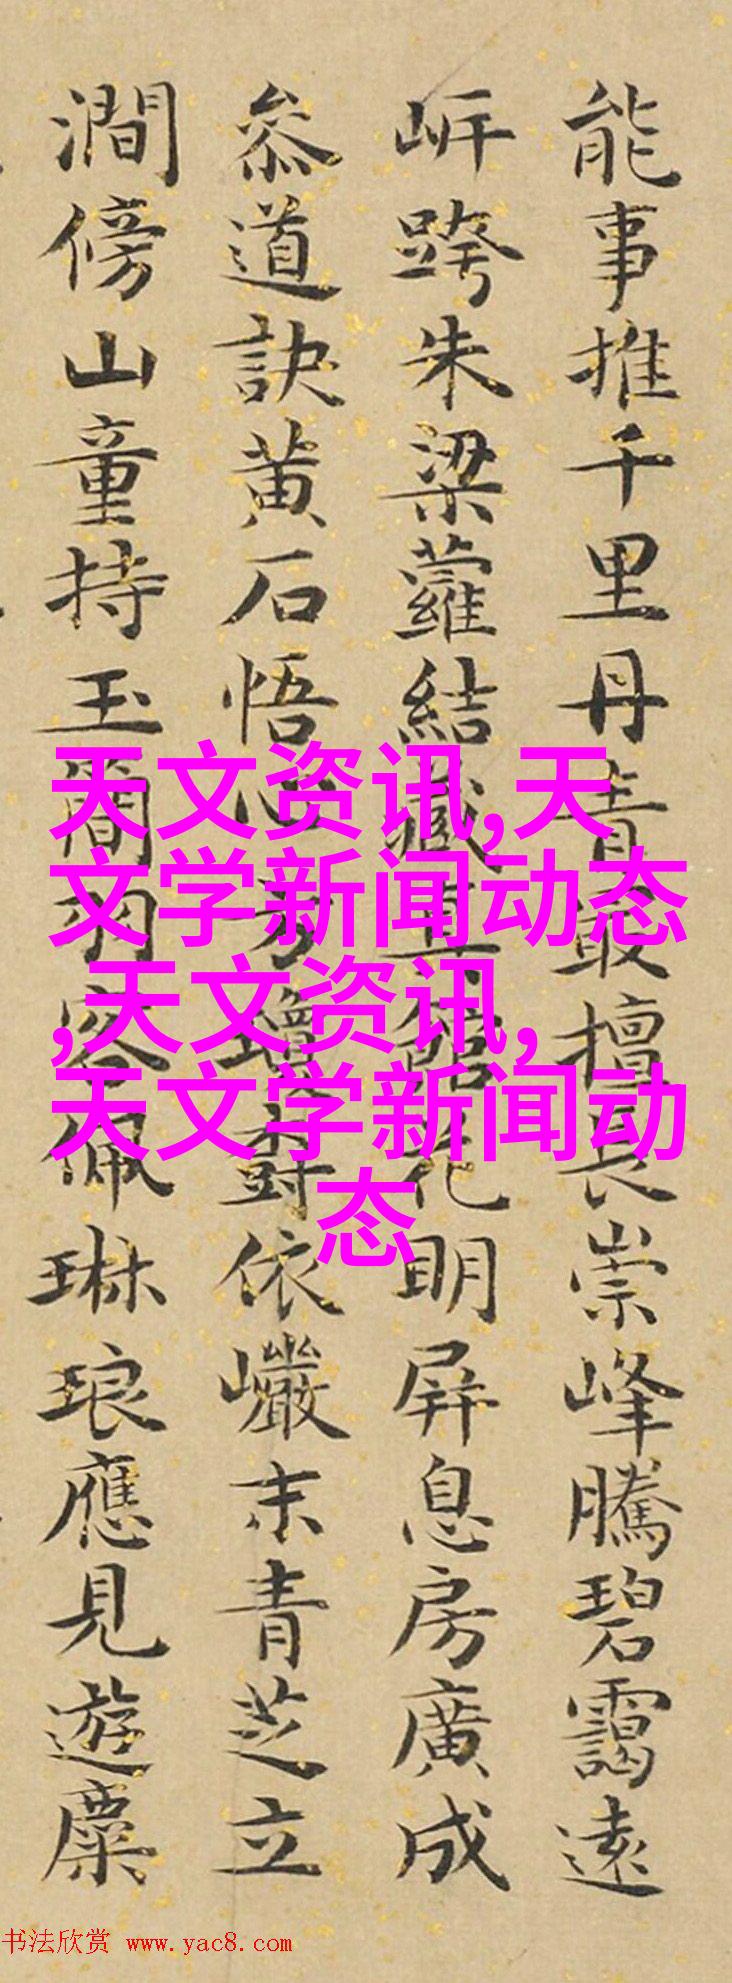 能事推千里丹青最擅長崇峰騰碧靄遠
岓跨朱梁蘿結藏真館花明屏息房廣成
叅道訣黃石悟心方增壽依巖末青芝立
澗傍山童持玉簡羽客佩琳琅應見遊麋
天文资讯,天
文学新闻动态
,天文资讯,
天文学新闻动
态
书法欣赏 www.yac8.com